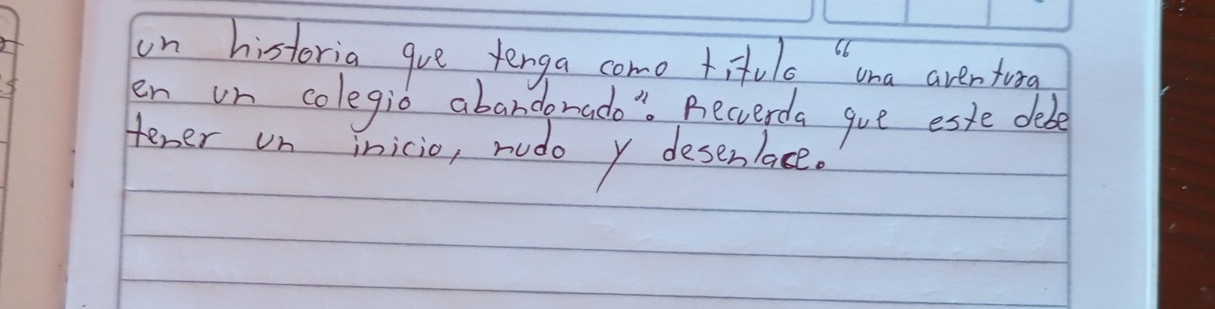 un historia que tenga como titulo "una aventura
en un colegio abandonado". Recuerda que este debe
tener un inicio, nudo y desenlace.